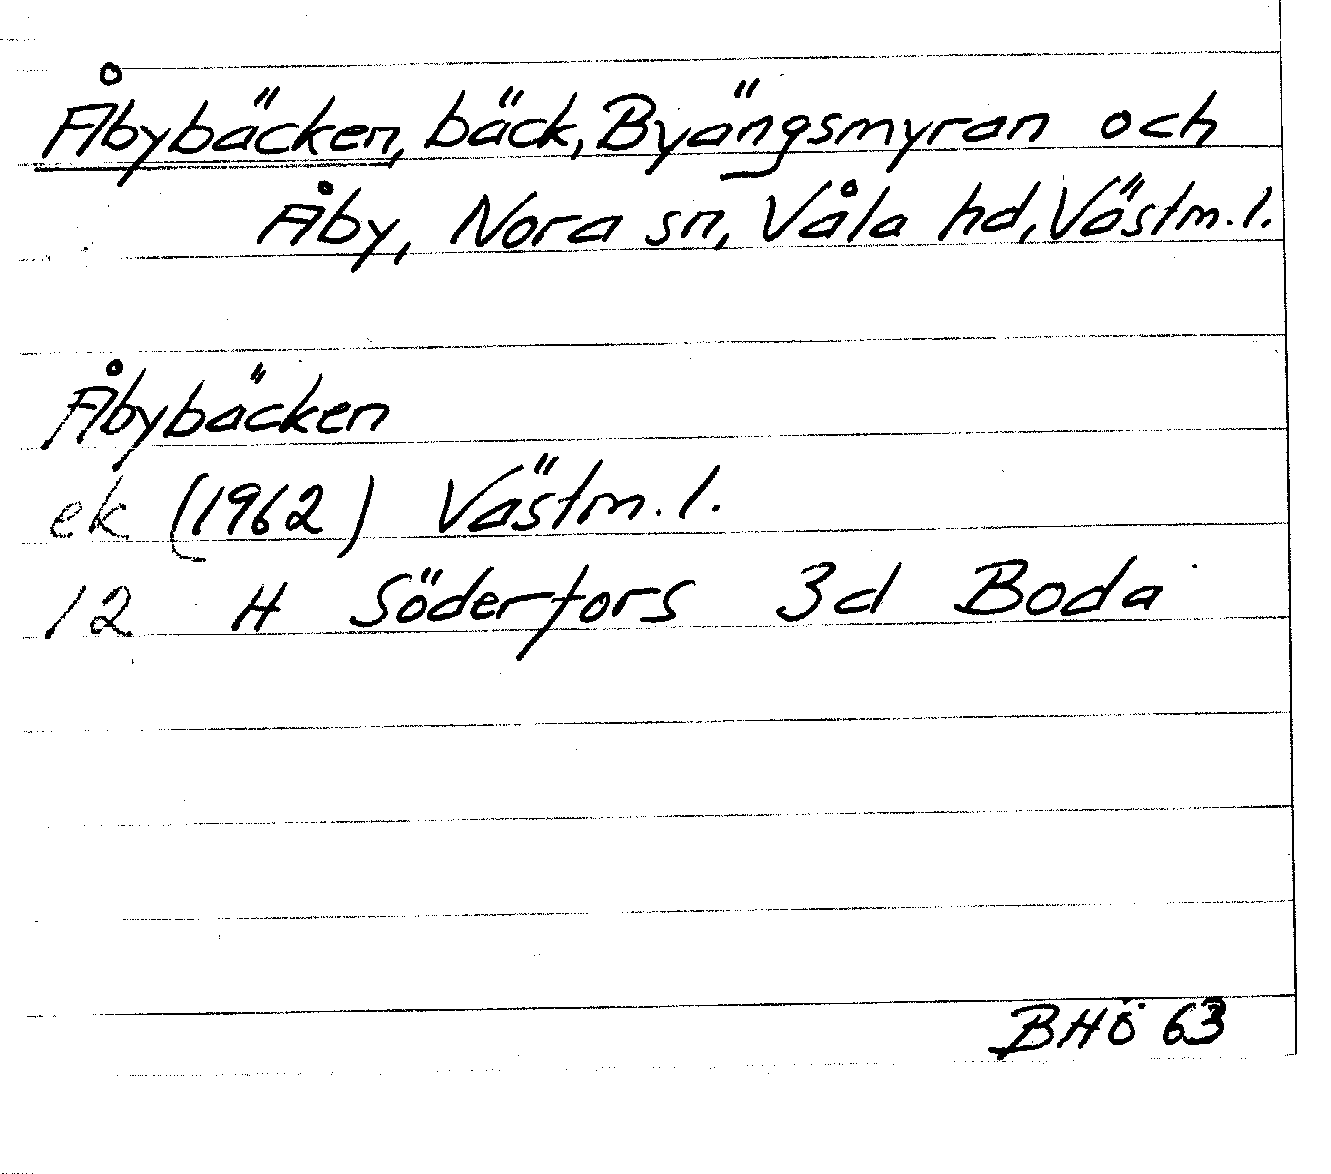 Åbybäcken, bäck, Byängsmyran och
Åby, Nora sn, Våla hd, Västm. l.
Åbybäcken
ek (1962) Västm. l.
12 H Söderfors 3d Boda
BHÖ 63